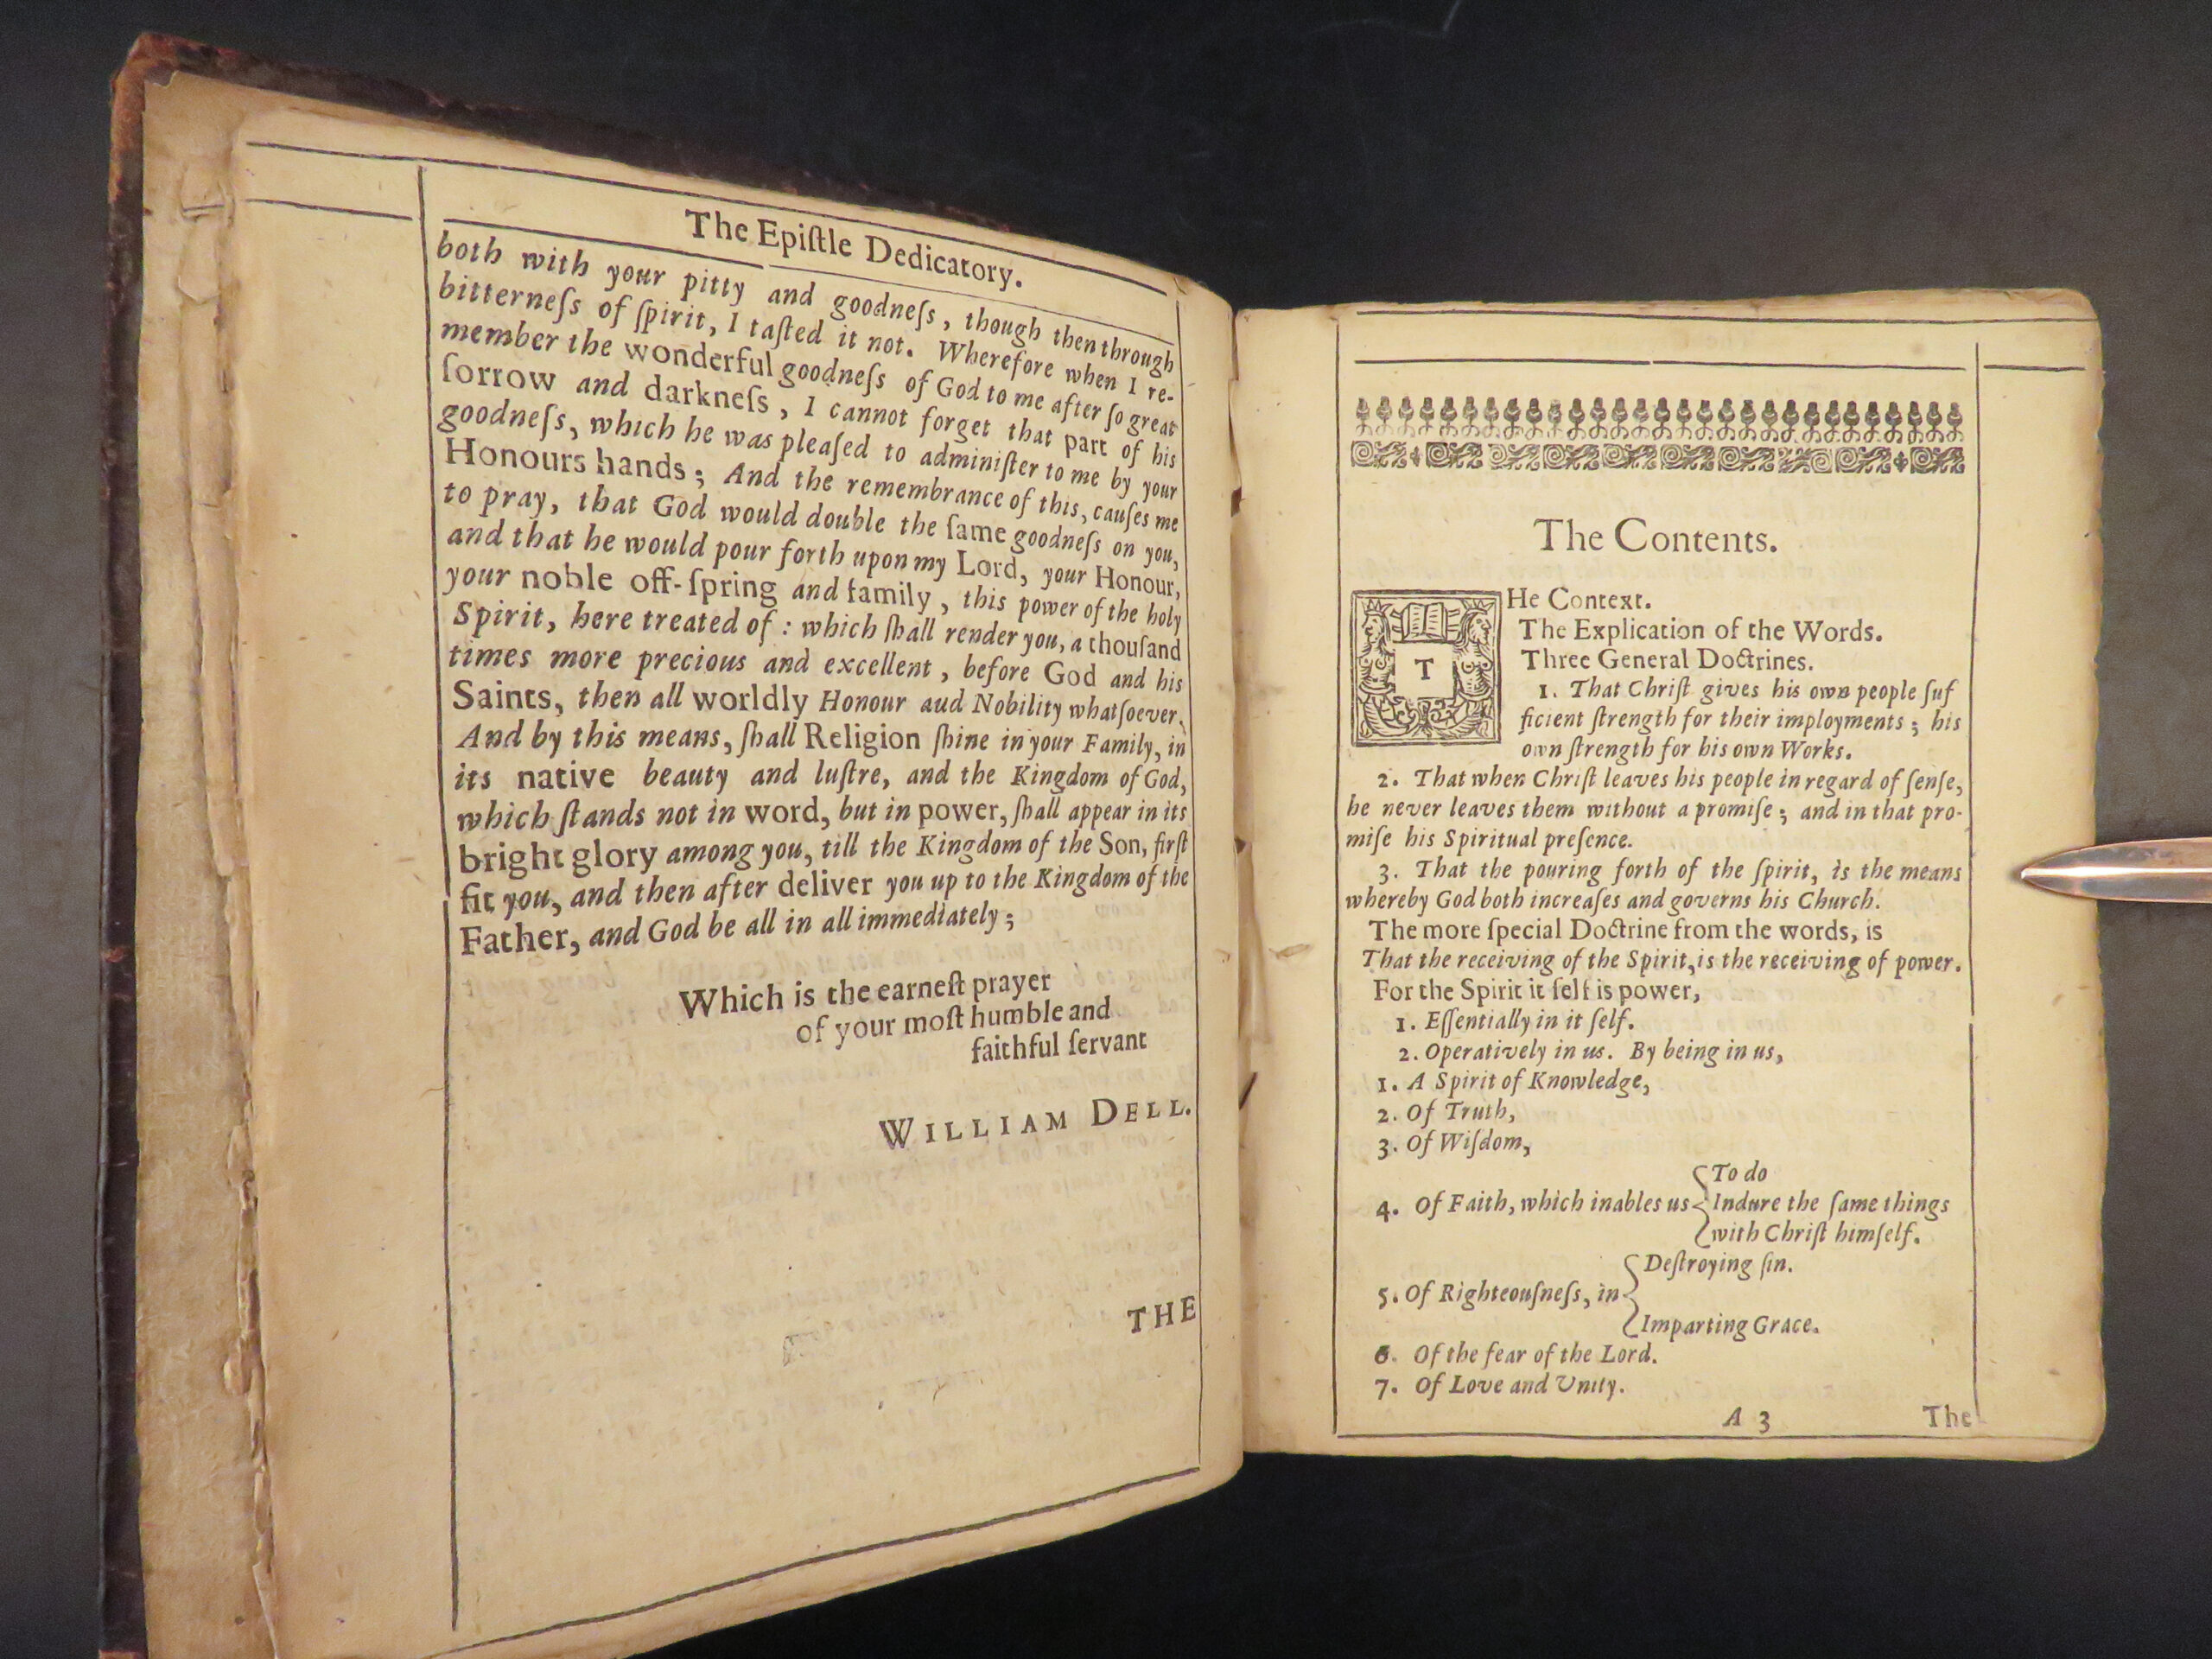 The Epiſtle Dedicatory.
both with your pitty and goodneſs, though then through
bitterneſs of ſpirit, I taſted it not. Wherefore when I re-
member the wonderful goodneſs of God to me after ſo great
ſorrow and darkneſs, I cannot forget that part of his
goodneſs, which he was pleaſed to adminiſter to me by your
Honours hands; And the remembrance of this, cauſes me
to pray, that God would double the ſame goodneſs on you,
and that he would pour forth upon my Lord, your Honour,
your noble off-ſpring and family, this power of the holy
Spirit, here treated of: which ſhall render you, a thouſand
times more precious and excellent, before God and his
Saints, then all worldly Honour aud Nobility whatſoever.
And by this means, ſhall Religion ſhine in your Family, in
its native beauty and luſtre, and the Kingdom of God,
which ſtands not in word, but in power, ſhall appear in its
bright glory among you, till the Kingdom of the Son, firſt
fit you, and then after deliver you up to the Kingdom of the
Father, and God be all in all immediately;
Which is the earneſt prayer
of your moſt humble and
faithful ſervant
WILLIAM DELL.
THE
The Contents.
THe Context.
The Explication of the Words.
Three General Doctrines.
1. That Chriſt gives his own people ſuf
ficient ſtrength for their imployments; his
own ſtrength for his own Works.
2. That when Chriſt leaves his people in regard of ſenſe,
he never leaves them without a promiſe; and in that pro-
miſe his Spiritual preſence.
3. That the pouring forth of the ſpirit, is the means
whereby God both increaſes and governs his Church.
The more ſpecial Doctrine from the words, is
That the receiving of the Spirit, is the receiving of power.
For the Spirit it ſelf is power,
1. Eſſentially in it ſelf.
2. Operatively in us. By being in us,
1. A Spirit of Knowledge,
2. Of Truth,
3. Of Wiſdom,
4. Of Faith, which inables us { To do
Indure the ſame things
with Chriſt himſelf.
5. Of Righteouſneſs, in { Deſtroying ſin.
Imparting Grace.
6. Of the fear of the Lord.
7. Of Love and Unity.
A 3 The